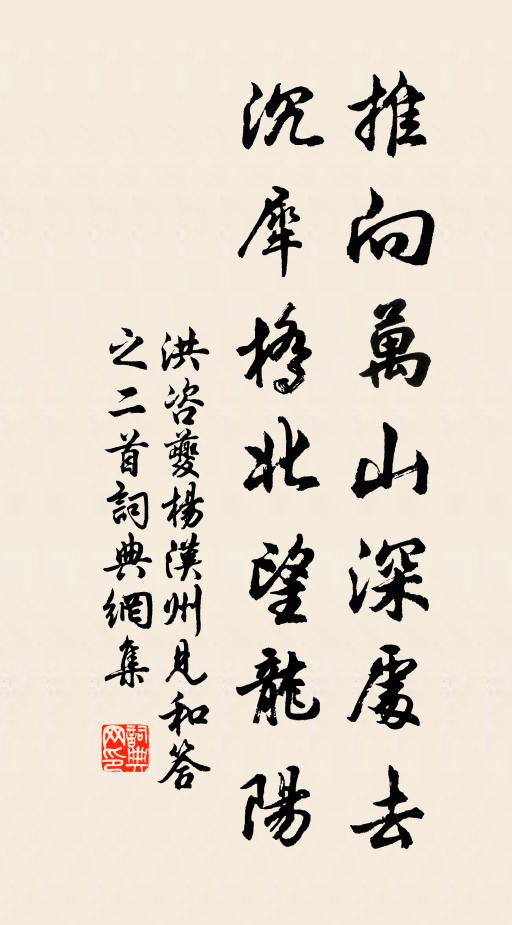 推向萬山深處去
沉犀橋北望龍陽
洪咨夔楊漢州見和答
之二首詞典網集
詞典
网印